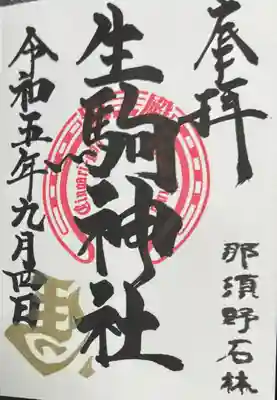 奉拝
那須野石林
生駒神社
令和五年九月四日
馬